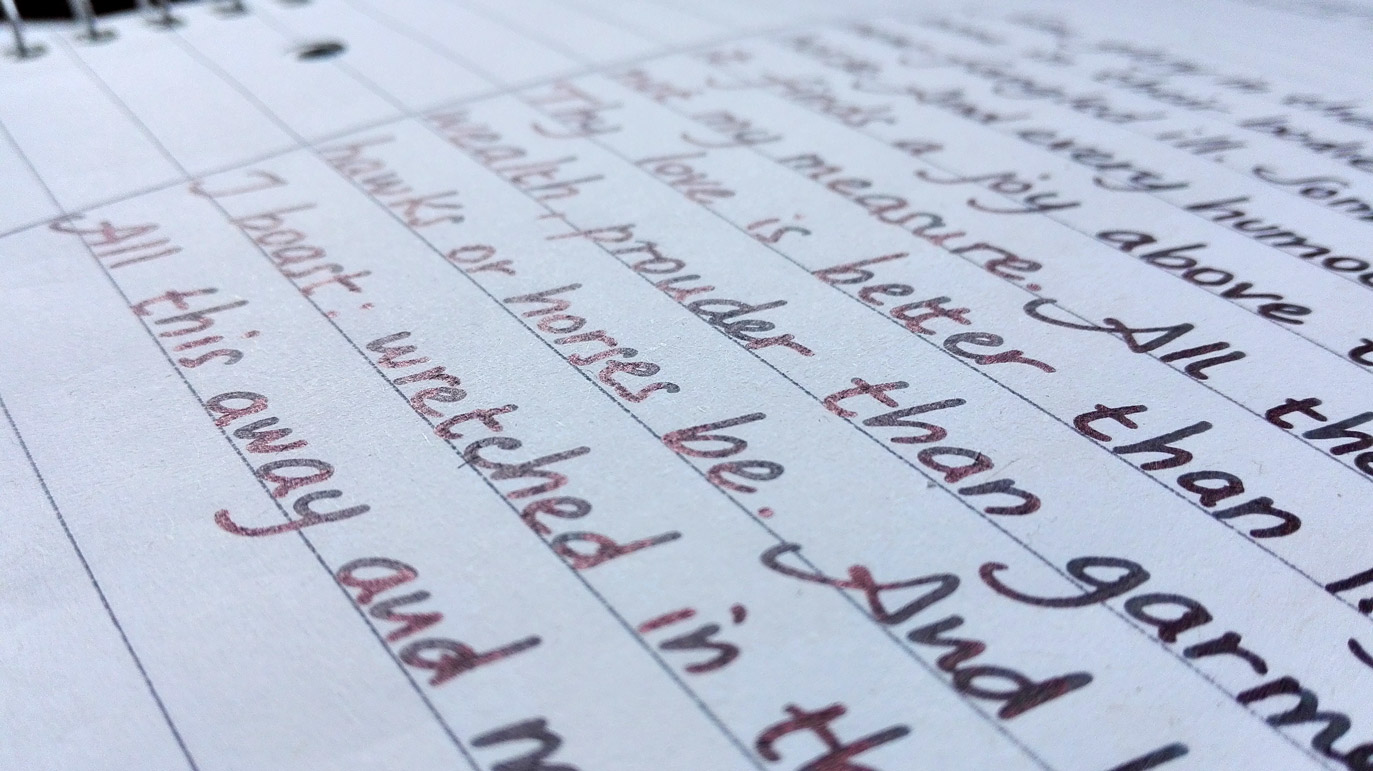 their bodie
ill. Som
And every humou
it finds a joy above t
not my measure. All the
Thy love is better than
wealth prouder than garme
hawks or horses be. And
I boast: wretched in th
All this away and m